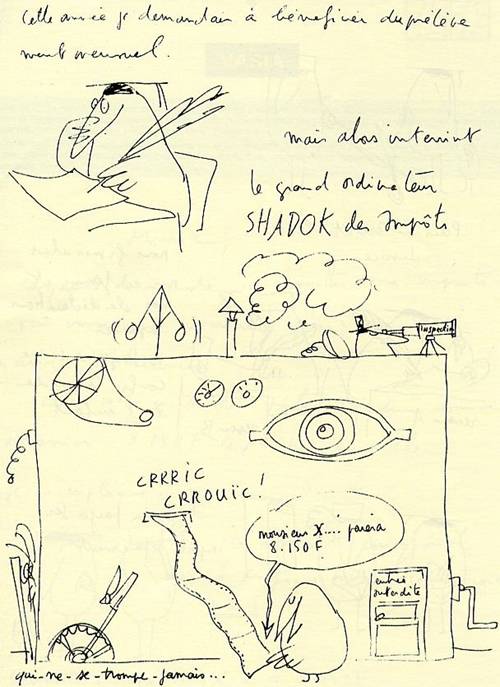 Cette année je demandais à bénéficier du prélève
ment mensuel.
mais alors intervint
le grand ordinateur
SHADOK des Impôts
Inspection
CRRRIC
CRROUÏC !
monsieur X.... paiera
8.150 F
entrée
interdite
qui-ne-se-trompe-jamais...